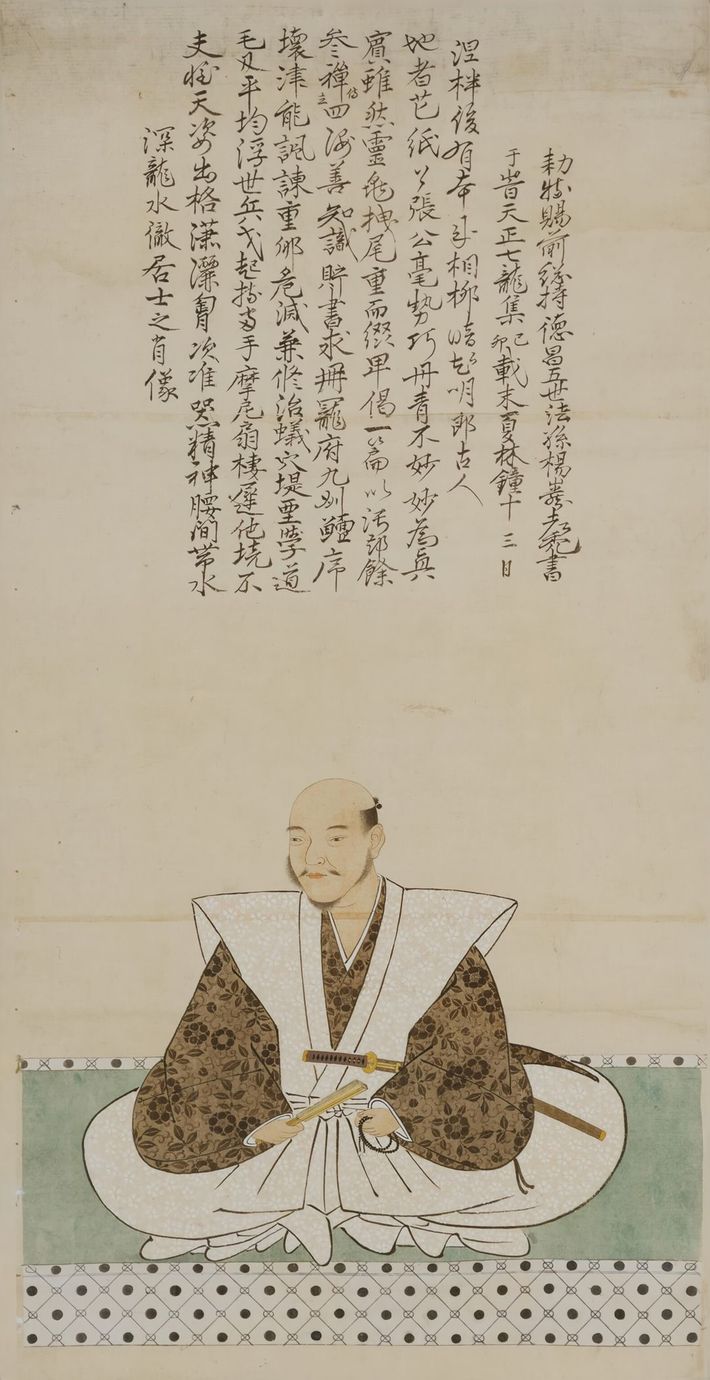 深龍水徹居士之肖像
夫惟天姿出格瀟灑胸次准然精神腰間帯水
毛刃平均浮世兵戈起手摩尼扇棲遅他境不
壊津能諷諫重卿危滅兼修治蟻穴堤垂学道
参禅四海善知識貯書求冊寵府九
賓雖然霊亀拽尾重而綴卑偈一篇以汚郎餘
地者芒紙公張公毫勢巧丹青不妙妙為真
涅槃後有本来相柳暗花明郎古人
于時天正七龍集己卯載末夏林鐘十三日
勅特賜前総持徳昌五世法孫楊岩老禿書